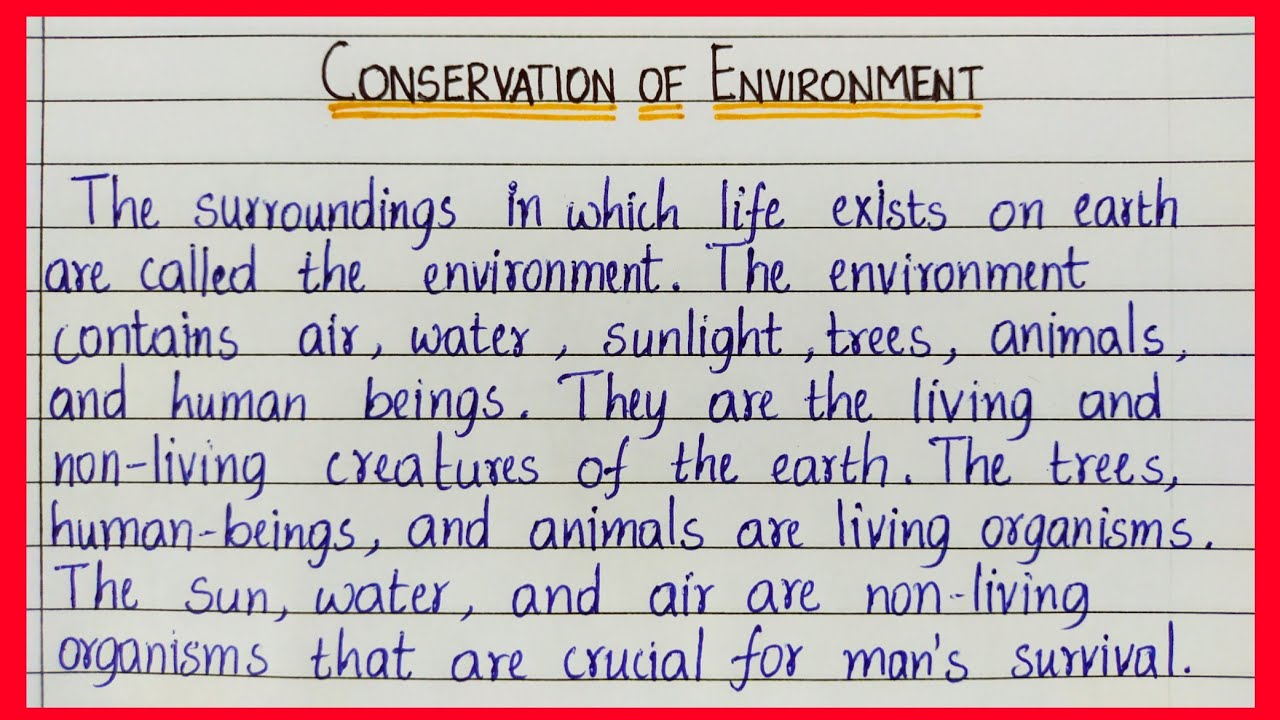 CONSERVATION OF ENVIRONMENT
The surroundings in which life exists on earth
are called the environment. The environment
contains air, water, sunlight, trees, animals,
and human beings. They are the living and
non-living creatures of the earth. The trees,
human-beings, and animals are living organisms.
The sun, water, and air are non-living
organisms that are crucial for man's survival.